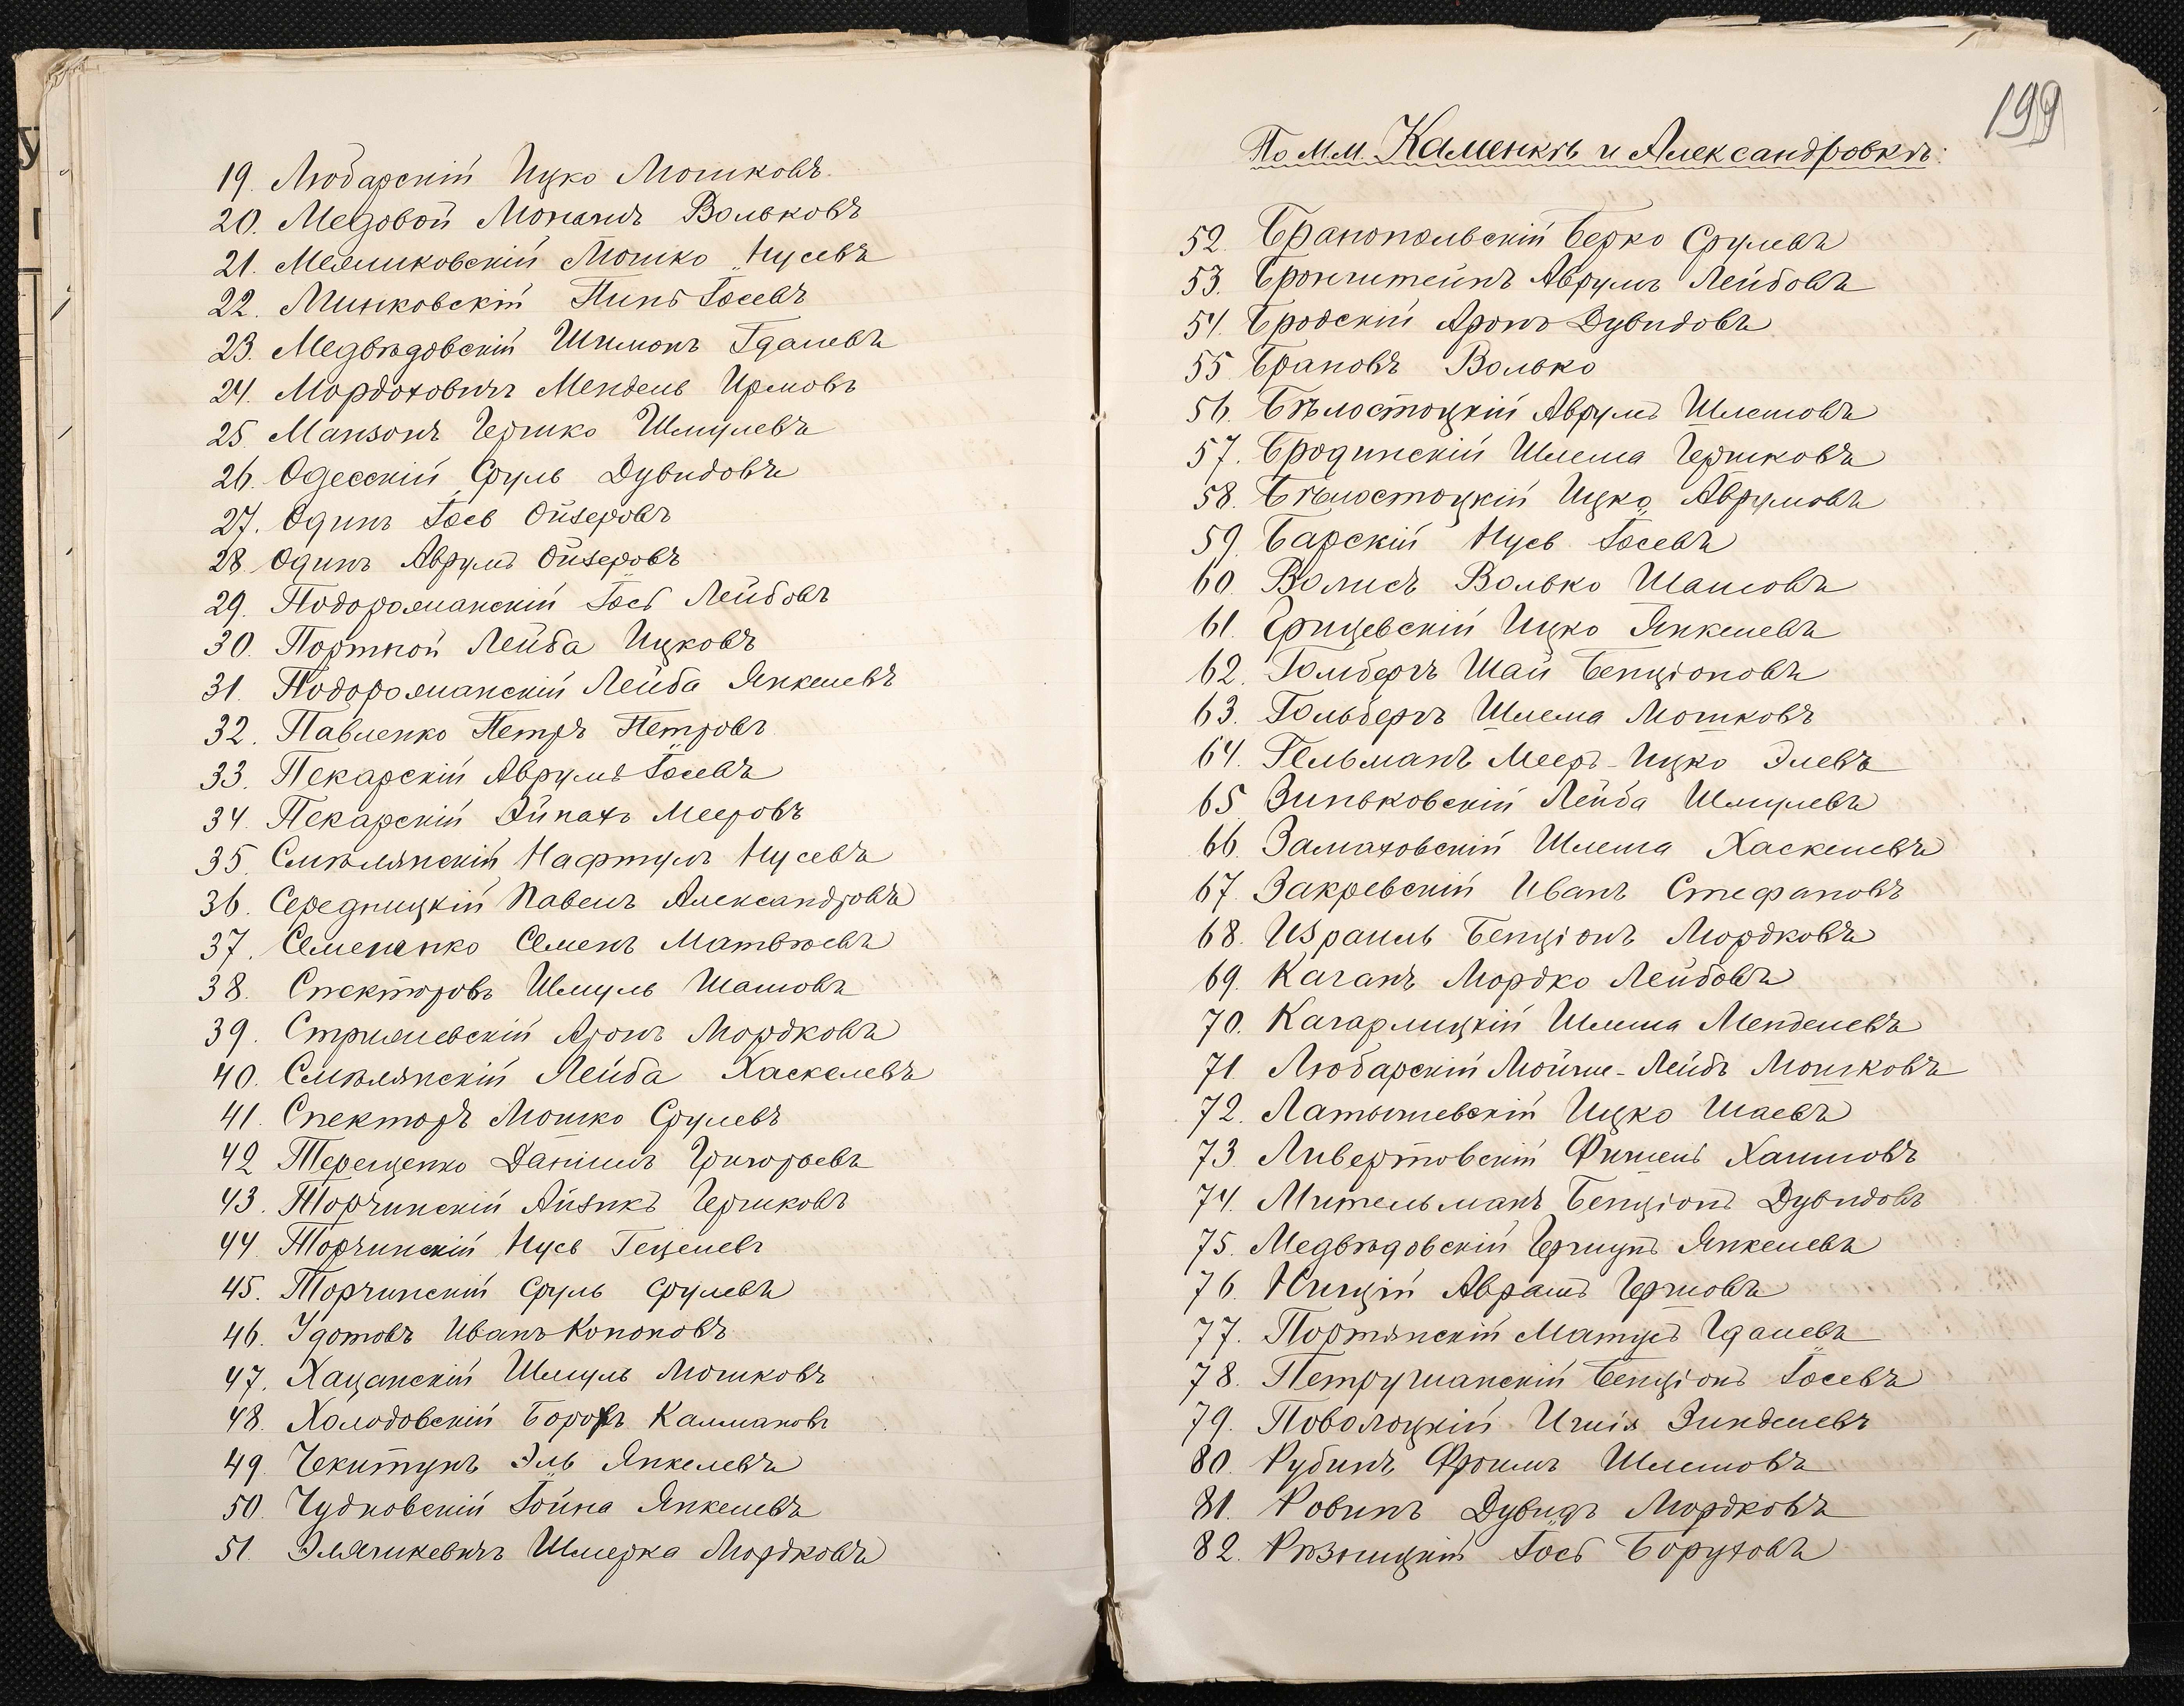 19. Любарскій Ицко Мошковъ.
20. Медовой Монашъ Вольковъ
21. Меямиковскій Мошко Нусевъ
22. Минковскій Пинъ Іосевъ
23. Медвѣдовскій Шимонъ Гдалевъ
24. Мордоховичъ Мендель Ирмовъ
25. Манзонъ Гершко Шмулевъ
26. Одесскій Сруль Дувидовъ
27. Одинъ Іось Ойзеровъ
28. Одинъ Аврумъ Ойзеровъ
29. Подорожанскій Іось Лейбовъ
30. Портной Лейба Ицковъ
31. Подорожанскій Лейба Янкелевъ
32. Павленко Петръ Петровъ
33. Пекарскій Аврумъ Іосевъ
34. Пекарскій Айнахъ Мееровъ
35. Смѣлянскій Нафтулъ Нусевъ
36. Середницкій Павелъ Александровъ
37. Семененко Семенъ Матвѣевъ
38. Спекторовъ Шмуль Шамовъ
39. Стрижевскій Аронъ Мордковъ
40. Смѣлянскій Лейба Хаскелевъ
41. Спекторъ Мошко Срулевъ
42. Терещенко Даніилъ Григорьевъ
43. Торчинскій Айзикъ Гершковъ
44. Торчинскій Нусь Гецелевъ
45. Торчинскій Сруль Срулевъ
46. Удотовъ Иванъ Кононовъ
47. Хацанскій Шмуль Мошковъ
48. Холодовскій Борохъ Калмановъ
49. Чекитунъ Эль Янкелевъ
50. Чудновскій Іойна Янкелевъ
51. Эляшкевичъ Шмерка Мордковъ
199
По м.м. Каменкѣ и Александровкѣ:
52. Бранопольскій Берко Срулевъ
53. Бронштейнъ Аврумъ Лейбовъ
54. Бродскій Аронъ Дувидовъ
55. Брановъ Волько
56. Бѣлостоцкій Аврумъ Шлемовъ
57. Бродинскій Шлема Гершковъ
58. Бѣлостоцкій Ицко Аврумовъ
59. Барскій Нусь Іосевъ
60. Волисъ Волько Шамовъ
61. Грицевскій Ицко Янкелевъ
62. Голмбергъ Шай Бенціоновъ
63. Гольбергъ Шлема Мошковъ
64. Гельманъ Меер-Ицко Элевъ
65. Зиньковскій Лейба Шмулевъ
66. Замаховскій Шлема Хаскелевъ
67. Закревскій Иванъ Стефановъ
68. Израиль Бенціонъ Мордковъ
69. Каганъ Мордко Лейбовъ
70. Кагарлицкій Шлема Менделевъ
71. Любарскій Мойше-Лейбъ Мошковъ
72. Латышевскій Ицко Шаевъ
73. Ливертовскій Фишель Хаимовъ
74. Мительманъ Бенціонъ Дувидовъ
75. Медвѣдовскій Герщунъ Янкелевъ
76. Ницій Аврамъ Гершовъ
77. Портянскій Матусъ Гдалевъ
78. Петрушанскій Бенціонъ Іосевъ
79. Поволоцкій Ишія Зинделевъ
80. Рубинъ Фроимъ Шлемовъ
81. Ровинъ Дувидъ Мордковъ
82. Рѣзницкій Іось Боруховъ